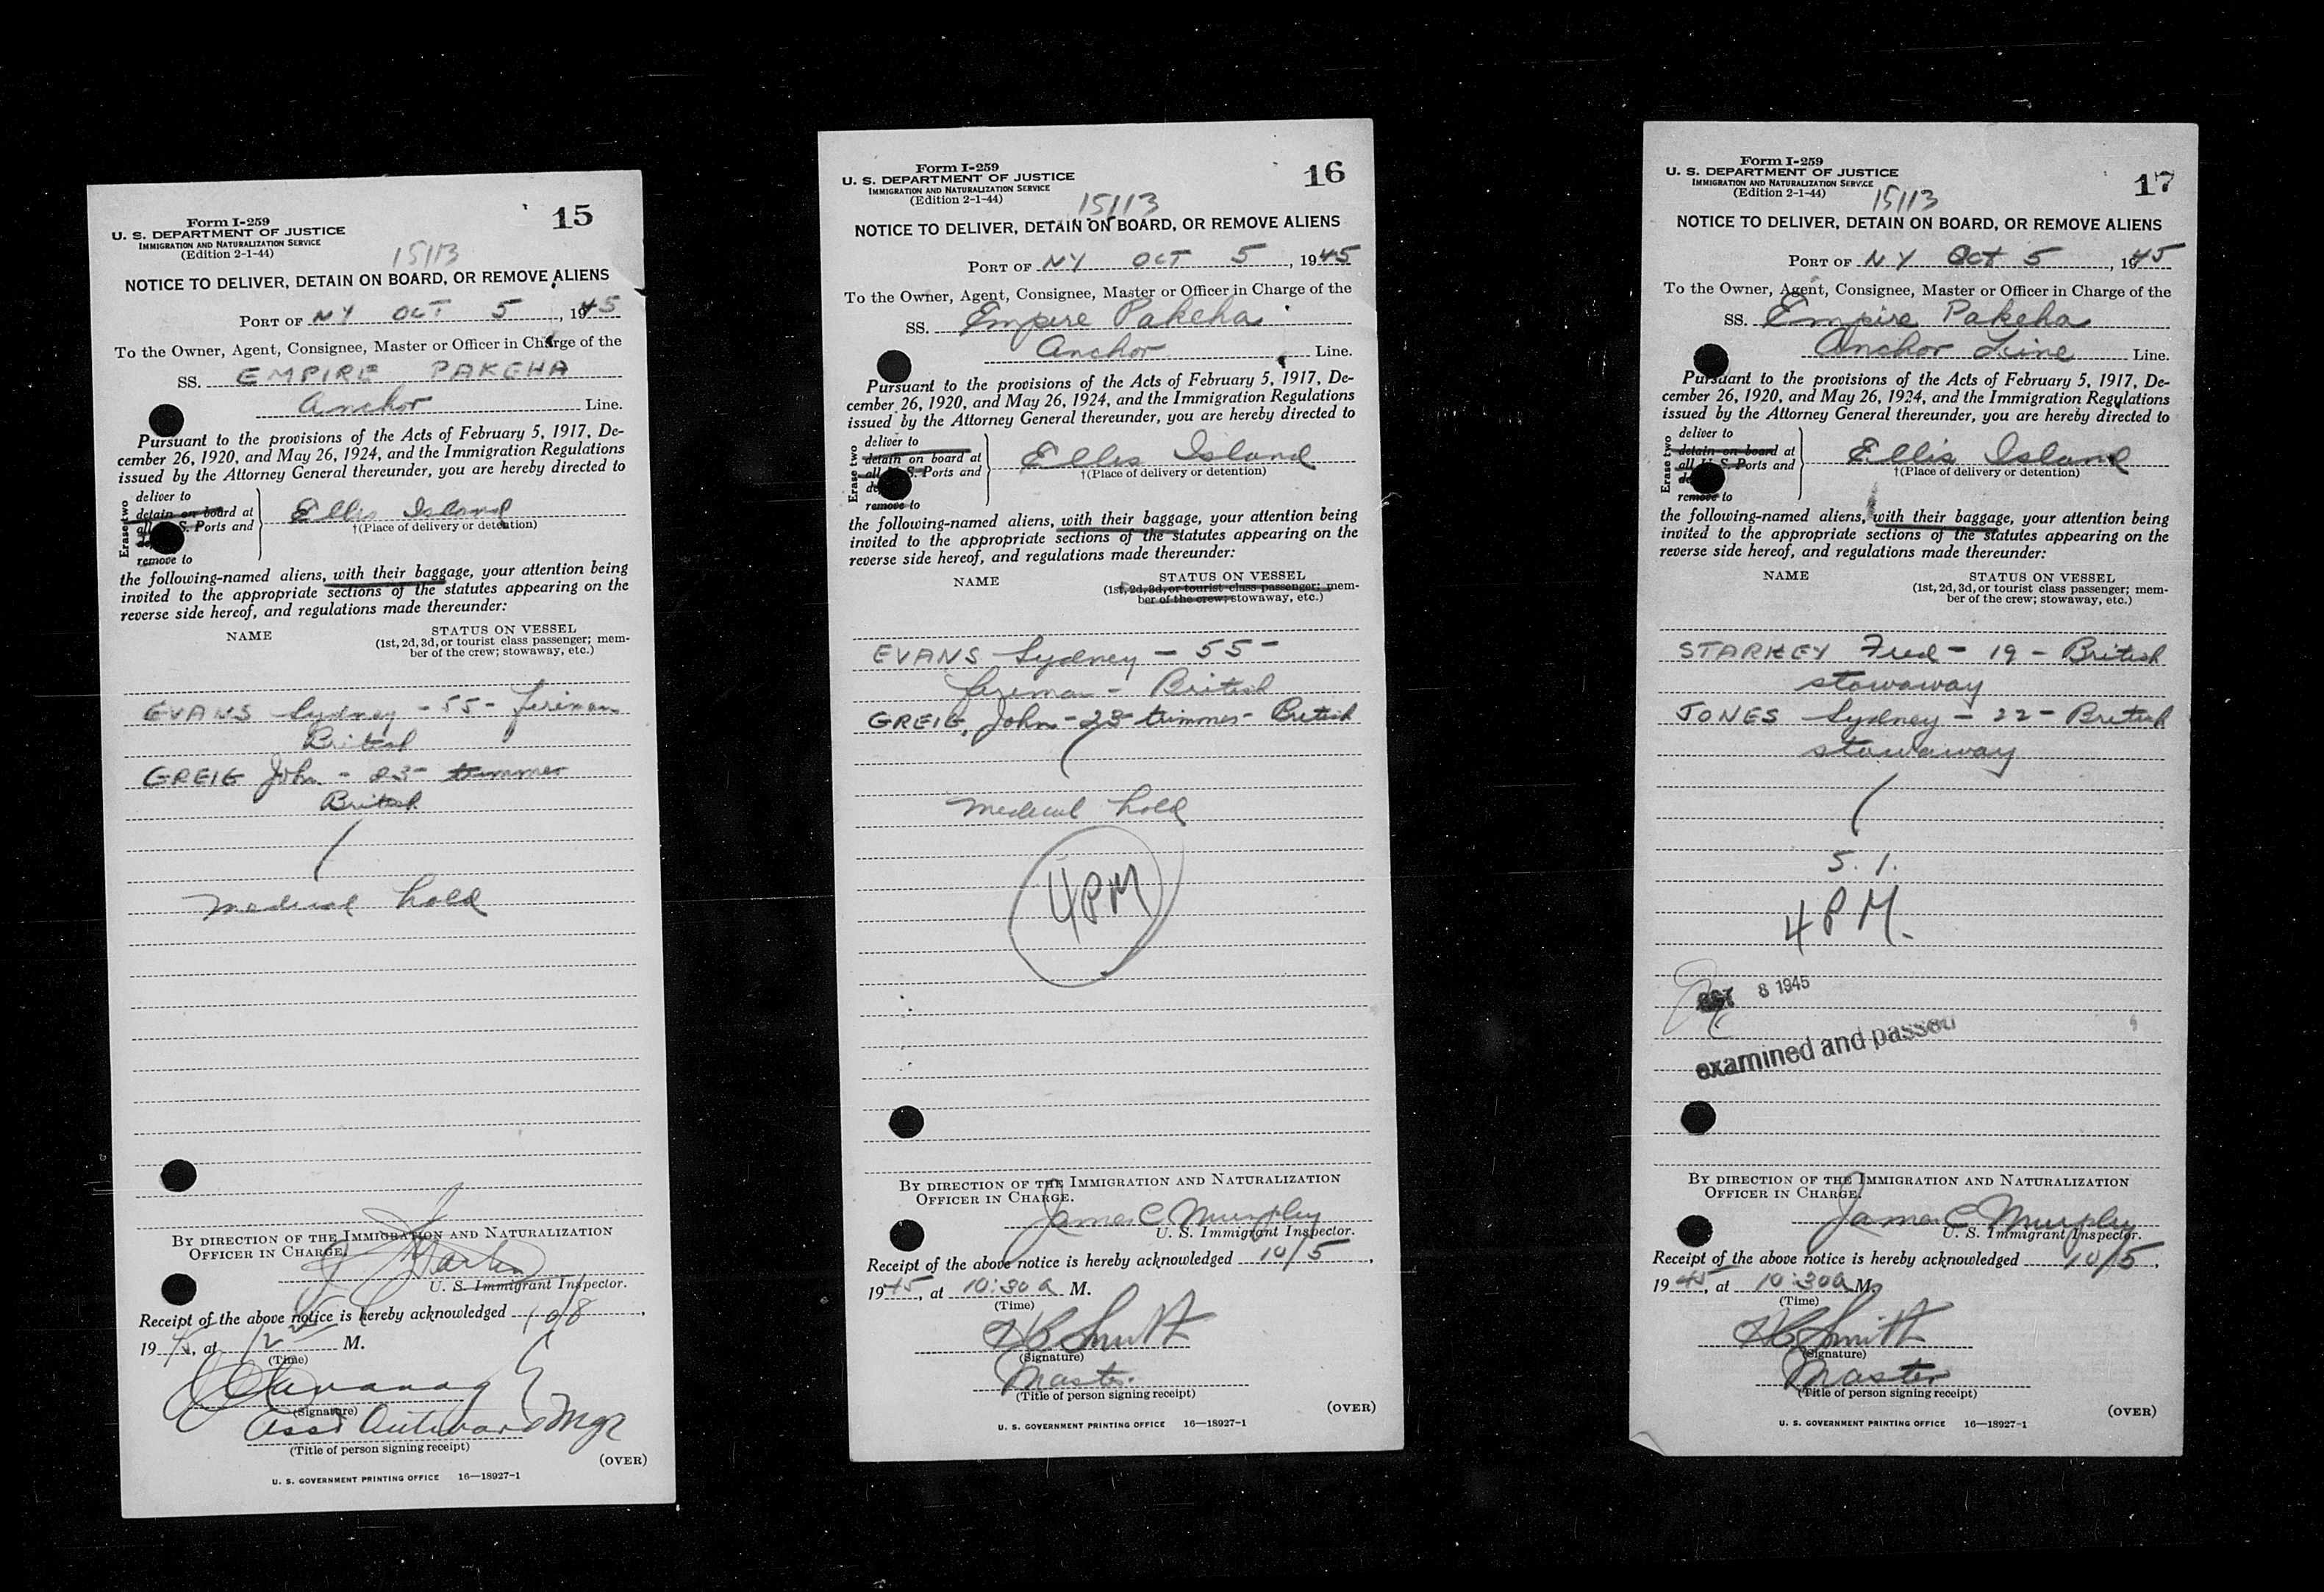 Form I-259
U. S. DEPARTMENT OF JUSTICE
IMMIGRATION AND NATURALIZATION SERVICE
(Edition 2-1-44)
15
15113
NOTICE TO DELIVER, DETAIN ON BOARD, OR REMOVE ALIENS
PORT OF NY OCT 5, 1945
To the Owner, Agent, Consignee, Master or Officer in Charge of the
SS. EMPIRE PAKEHA
Anchor Line.
Pursuant to the provisions of the Acts of February 5, 1917, De-
cember 26, 1920, and May 26, 1924, and the Immigration Regulations
issued by the Attorney General thereunder, you are hereby directed to
Erase two
deliver to
detain on board at
all S. Ports and
remove to
Ellis Island
†(Place of delivery or detention)
the following-named aliens, with their baggage, your attention being
invited to the appropriate sections of the statutes appearing on the
reverse side hereof, and regulations made thereunder:
NAME
STATUS ON VESSEL
(1st, 2d, 3d, or tourist class passenger; mem-
ber of the crew; stowaway, etc.)
EVANS Sydney - 55 - fireman
British
GREIG John - 23 - trimmer
British
Medical hold
BY DIRECTION OF THE IMMIGRATION AND NATURALIZATION
OFFICER IN CHARGE.
U. S. Immigrant Inspector.
Receipt of the above notice is hereby acknowledged 10/8,
1945, at 12 M.
(Time)
(Signature)
Asst Outward Mgr
(Title of person signing receipt)
(OVER)
U. S. GOVERNMENT PRINTING OFFICE 16—18927-1
Form I-259
U. S. DEPARTMENT OF JUSTICE
IMMIGRATION AND NATURALIZATION SERVICE
(Edition 2-1-44)
16
15113
NOTICE TO DELIVER, DETAIN ON BOARD, OR REMOVE ALIENS
PORT OF NY OCT 5, 1945
To the Owner, Agent, Consignee, Master or Officer in Charge of the
SS. Empire Pakeha
Anchor Line.
Pursuant to the provisions of the Acts of February 5, 1917, De-
cember 26, 1920, and May 26, 1924, and the Immigration Regulations
issued by the Attorney General thereunder, you are hereby directed to
Erase two
deliver to
detain on board at
all S. Ports and
remove to
Ellis Island
†(Place of delivery or detention)
the following-named aliens, with their baggage, your attention being
invited to the appropriate sections of the statutes appearing on the
reverse side hereof, and regulations made thereunder:
NAME
STATUS ON VESSEL
(1st, 2d, 3d, or tourist class passenger; mem-
ber of the crew; stowaway, etc.)
EVANS Sydney - 55 -
fireman - British
GREIG, John - 23 - trimmer - British
Medical hold
4PM
BY DIRECTION OF THE IMMIGRATION AND NATURALIZATION
OFFICER IN CHARGE.
James C Murphy
U. S. Immigrant Inspector.
Receipt of the above notice is hereby acknowledged 10/5,
1945, at 10:30 a M.
(Time)
HB Smith
(Signature)
Master
(Title of person signing receipt)
(OVER)
U. S. GOVERNMENT PRINTING OFFICE 16—18927-1
Form I-259
U. S. DEPARTMENT OF JUSTICE
IMMIGRATION AND NATURALIZATION SERVICE
(Edition 2-1-44)
17
15113
NOTICE TO DELIVER, DETAIN ON BOARD, OR REMOVE ALIENS
PORT OF NY Oct 5, 1945
To the Owner, Agent, Consignee, Master or Officer in Charge of the
SS. Empire Pakeha
Anchor Line Line.
Pursuant to the provisions of the Acts of February 5, 1917, De-
cember 26, 1920, and May 26, 1924, and the Immigration Regulations
issued by the Attorney General thereunder, you are hereby directed to
Erase two
deliver to
detain on board at
all U. S. Ports and
remove to
Ellis Island
†(Place of delivery or detention)
the following-named aliens, with their baggage, your attention being
invited to the appropriate sections of the statutes appearing on the
reverse side hereof, and regulations made thereunder:
NAME
STATUS ON VESSEL
(1st, 2d, 3d, or tourist class passenger; mem-
ber of the crew; stowaway, etc.)
STARKEY Fred - 19 - British
stowaway
JONES Sydney - 22 - British
stowaway
S. I.
4 PM.
OCT 8 1945
examined and passed
BY DIRECTION OF THE IMMIGRATION AND NATURALIZATION
OFFICER IN CHARGE.
James C Murphy
U. S. Immigrant Inspector.
Receipt of the above notice is hereby acknowledged 10/5,
1945, at 10:30a M.
(Time)
HB Smith
(Signature)
Master
(Title of person signing receipt)
(OVER)
U. S. GOVERNMENT PRINTING OFFICE 16—18927-1